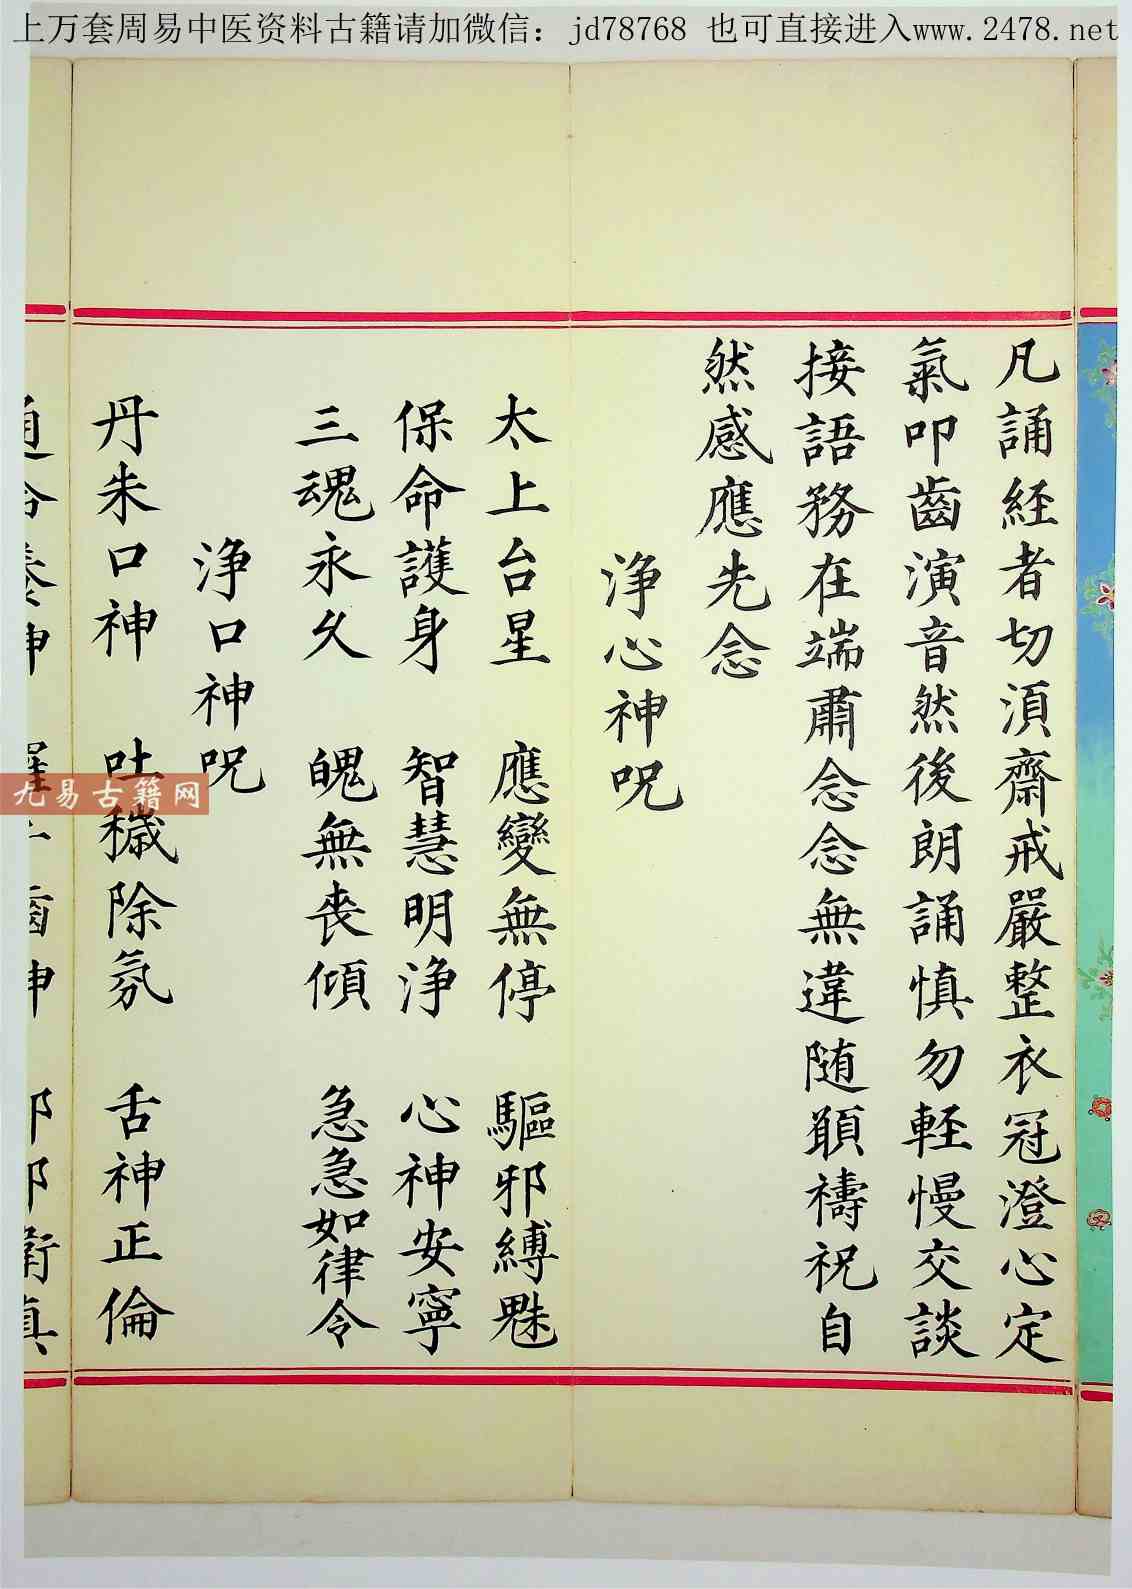 上万套周易中医资料古籍请加微信：jd78768 也可直接进入www.2478.net
凡誦経者切湏齋戒嚴整衣冠澄心定
氣叩齒演音然後朗誦慎勿軽慢交談
接語務在端肅念念無違随願禱祝自
然感應先念
浄心神咒
太上台星 應變無停 驅邪縛魅
保命護身 智慧明浄 心神安寧
三魂永久 魄無喪傾 急急如律令
浄口神咒
丹朱口神 吐穢除氛 舌神正倫
九易古籍网